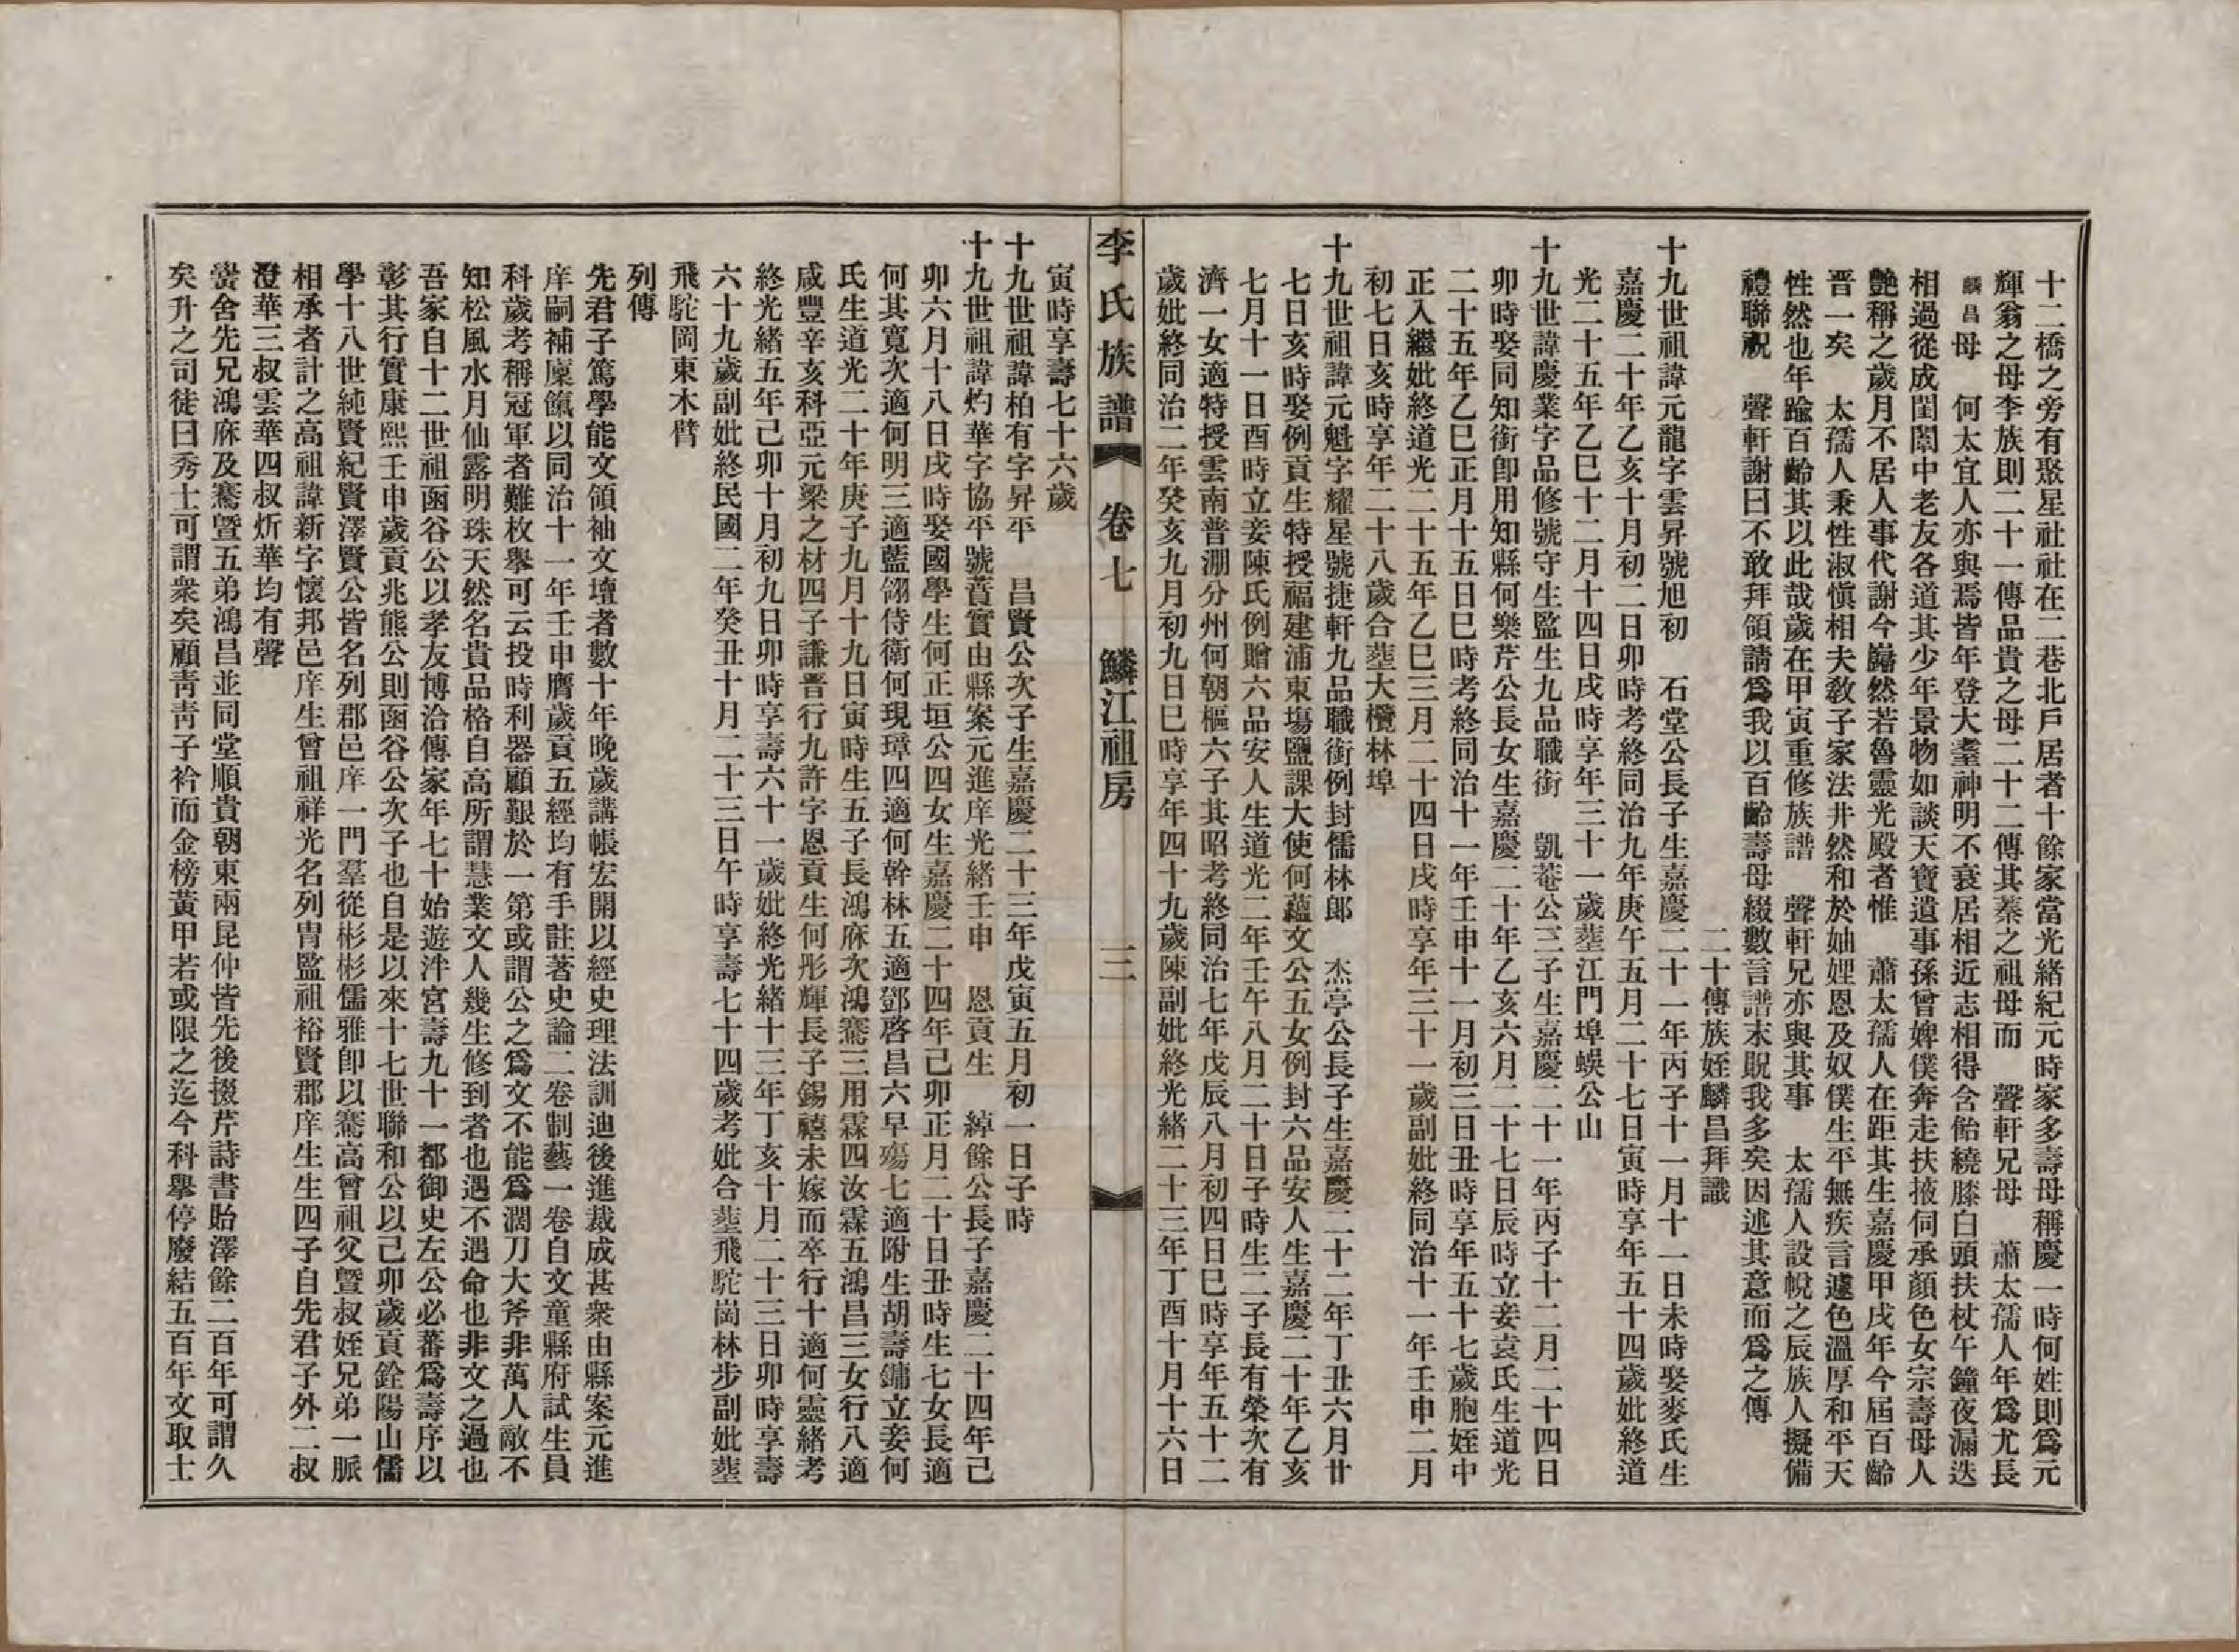 十二橋之旁有聚星社社在二巷北戶居者十餘家當光緒紀元時家多壽母稱慶一時何姓則爲元
輝翁之母李族則二十一傳品貴之母二十二傳其蓁之祖母而　聲軒兄母　蕭太孺人年爲尤長
麟昌母　何太宜人亦與焉皆年登大耋神明不衰居相近志相得含飴繞膝白頭扶杖午鐘夜漏迭
相過從成閨闈中老友各道其少年景物如談天寶遺事孫曾婢僕奔走扶掖伺承顏色女宗壽母人
艷稱之歲月不居人事代謝今巋然若魯靈光殿者惟　蕭太孺人在距其生嘉慶甲戌年今屆百齡
晋一矣　太孺人秉性淑愼相夫敎子家法井然和於妯娌恩及奴僕生平無疾言遽色溫厚和平天
性然也年踰百齡其以此哉歲在甲寅重修族譜　聲軒兄亦與其事　太孺人設帨之辰族人擬備
禮聯祝　聲軒謝曰不敢拜領請爲我以百齡壽母綴數言譜末貺我多矣因述其意而爲之傳
二十傳族姪麟昌拜識
十九世祖諱元龍字雲昇號旭初　石堂公長子生嘉慶二十一年丙子十一月十一日未時娶麥氏生
嘉慶二十年乙亥十月初二日卯時考終同治九年庚午五月二十七日寅時享年五十四歲妣終道
光二十五年乙巳十二月十四日戌時享年三十一歲塟江門埠蜈公山
十九世諱慶業字品修號守生監生九品職銜　凱菴公三子生嘉慶二十一年丙子十二月二十四日
卯時娶同知銜卽用知縣何樂芹公長女生嘉慶二十年乙亥六月二十七日辰時立妾袁氏生道光
二十五年乙巳正月十五日巳時考終同治十一年壬申十一月初三日丑時享年五十七歲胞姪中
正入繼妣終道光二十五年乙巳三月二十四日戌時享年三十一歲副妣終同治十一年壬申二月
初七日亥時享年二十八歲合塟大欖林埠
十九世祖諱元魁字耀星號捷軒九品職銜例封儒林郎　杰亭公長子生嘉慶二十二年丁丑六月廿
七日亥時娶例貢生特授福建浦東塲鹽課大使何蘊文公五女例封六品安人生嘉慶二十年乙亥
七月十一日酉時立妾陳氏例贈六品安人生道光二年壬午八月二十日子時生二子長有榮次有
濟一女適特授雲南普淜分州何朝樞六子其昭考終同治七年戊辰八月初四日巳時享年五十二
歲妣終同治二年癸亥九月初九日巳時享年四十九歲陳副妣終光緒二十三年丁酉十月十六日
李氏族譜　卷七　鱗江祖房　三
寅時享壽七十六歲
十九世祖諱柏有字昇平　昌賢公次子生嘉慶二十三年戊寅五月初一日子時
十九世祖諱灼華字協平號蕡實由縣案元進庠光緒壬申　恩貢生　綽餘公長子嘉慶二十四年己
卯六月十八日戌時娶國學生何正垣公四女生嘉慶二十四年己卯正月二十日丑時生七女長適
何其寬次適何明三適藍翎侍衛何現璋四適何幹林五適鄧啓昌六早殤七適附生胡壽鏞立妾何
氏生道光二十年庚子九月十九日寅時生五子長鴻庥次鴻騫三用霖四汝霖五鴻昌三女行八適
咸豐辛亥科亞元梁之材四子謙晋行九許字恩貢生何彤輝長子錫禧未嫁而卒行十適何靈緒考
終光緒五年己卯十月初九日卯時享壽六十一歲妣終光緒十三年丁亥十月二十三日卯時享壽
六十九歲副妣終民國二年癸丑十月二十三日午時享壽七十四歲考妣合塟飛駝崗林步副妣塟
飛駝岡東木臂
列傳
先君子篤學能文領袖文壇者數十年晚歲講帳宏開以經史理法訓迪後進裁成甚衆由縣案元進
庠嗣補廩餼以同治十一年壬申膺歲貢五經均有手註著史論二卷制藝一卷自文童縣府試生員
科歲考稱冠軍者難枚擧可云投時利器顧艱於一第或謂公之爲文不能爲濶刀大斧非萬人敵不
知松風水月仙露明珠天然名貴品格自高所謂慧業文人幾生修到者也遇不遇命也非文之過也
吾家自十二世祖函谷公以孝友博洽傳家年七十始遊泮宮壽九十一都御史左公必蕃爲壽序以
彰其行實康熙壬申歲貢兆熊公則函谷公次子也自是以來十七世聯和公以己卯歲貢銓陽山儒
學十八世純賢紀賢澤賢公皆名列郡邑庠一門羣從彬彬儒雅卽以騫高曾祖父曁叔姪兄弟一脈
相承者計之高祖諱新字懷邦邑庠生曾祖祥光名列胄監祖裕賢郡庠生生四子自先君子外二叔
澄華三叔雲華四叔炘華均有聲
黌舍先兄鴻庥及騫曁五弟鴻昌並同堂順貴朝東兩昆仲皆先後掇芹詩書貽澤餘二百年可謂久
矣升之司徒曰秀士可謂衆矣顧靑靑子衿而金榜黃甲若或限之迄今科擧停廢結五百年文取士